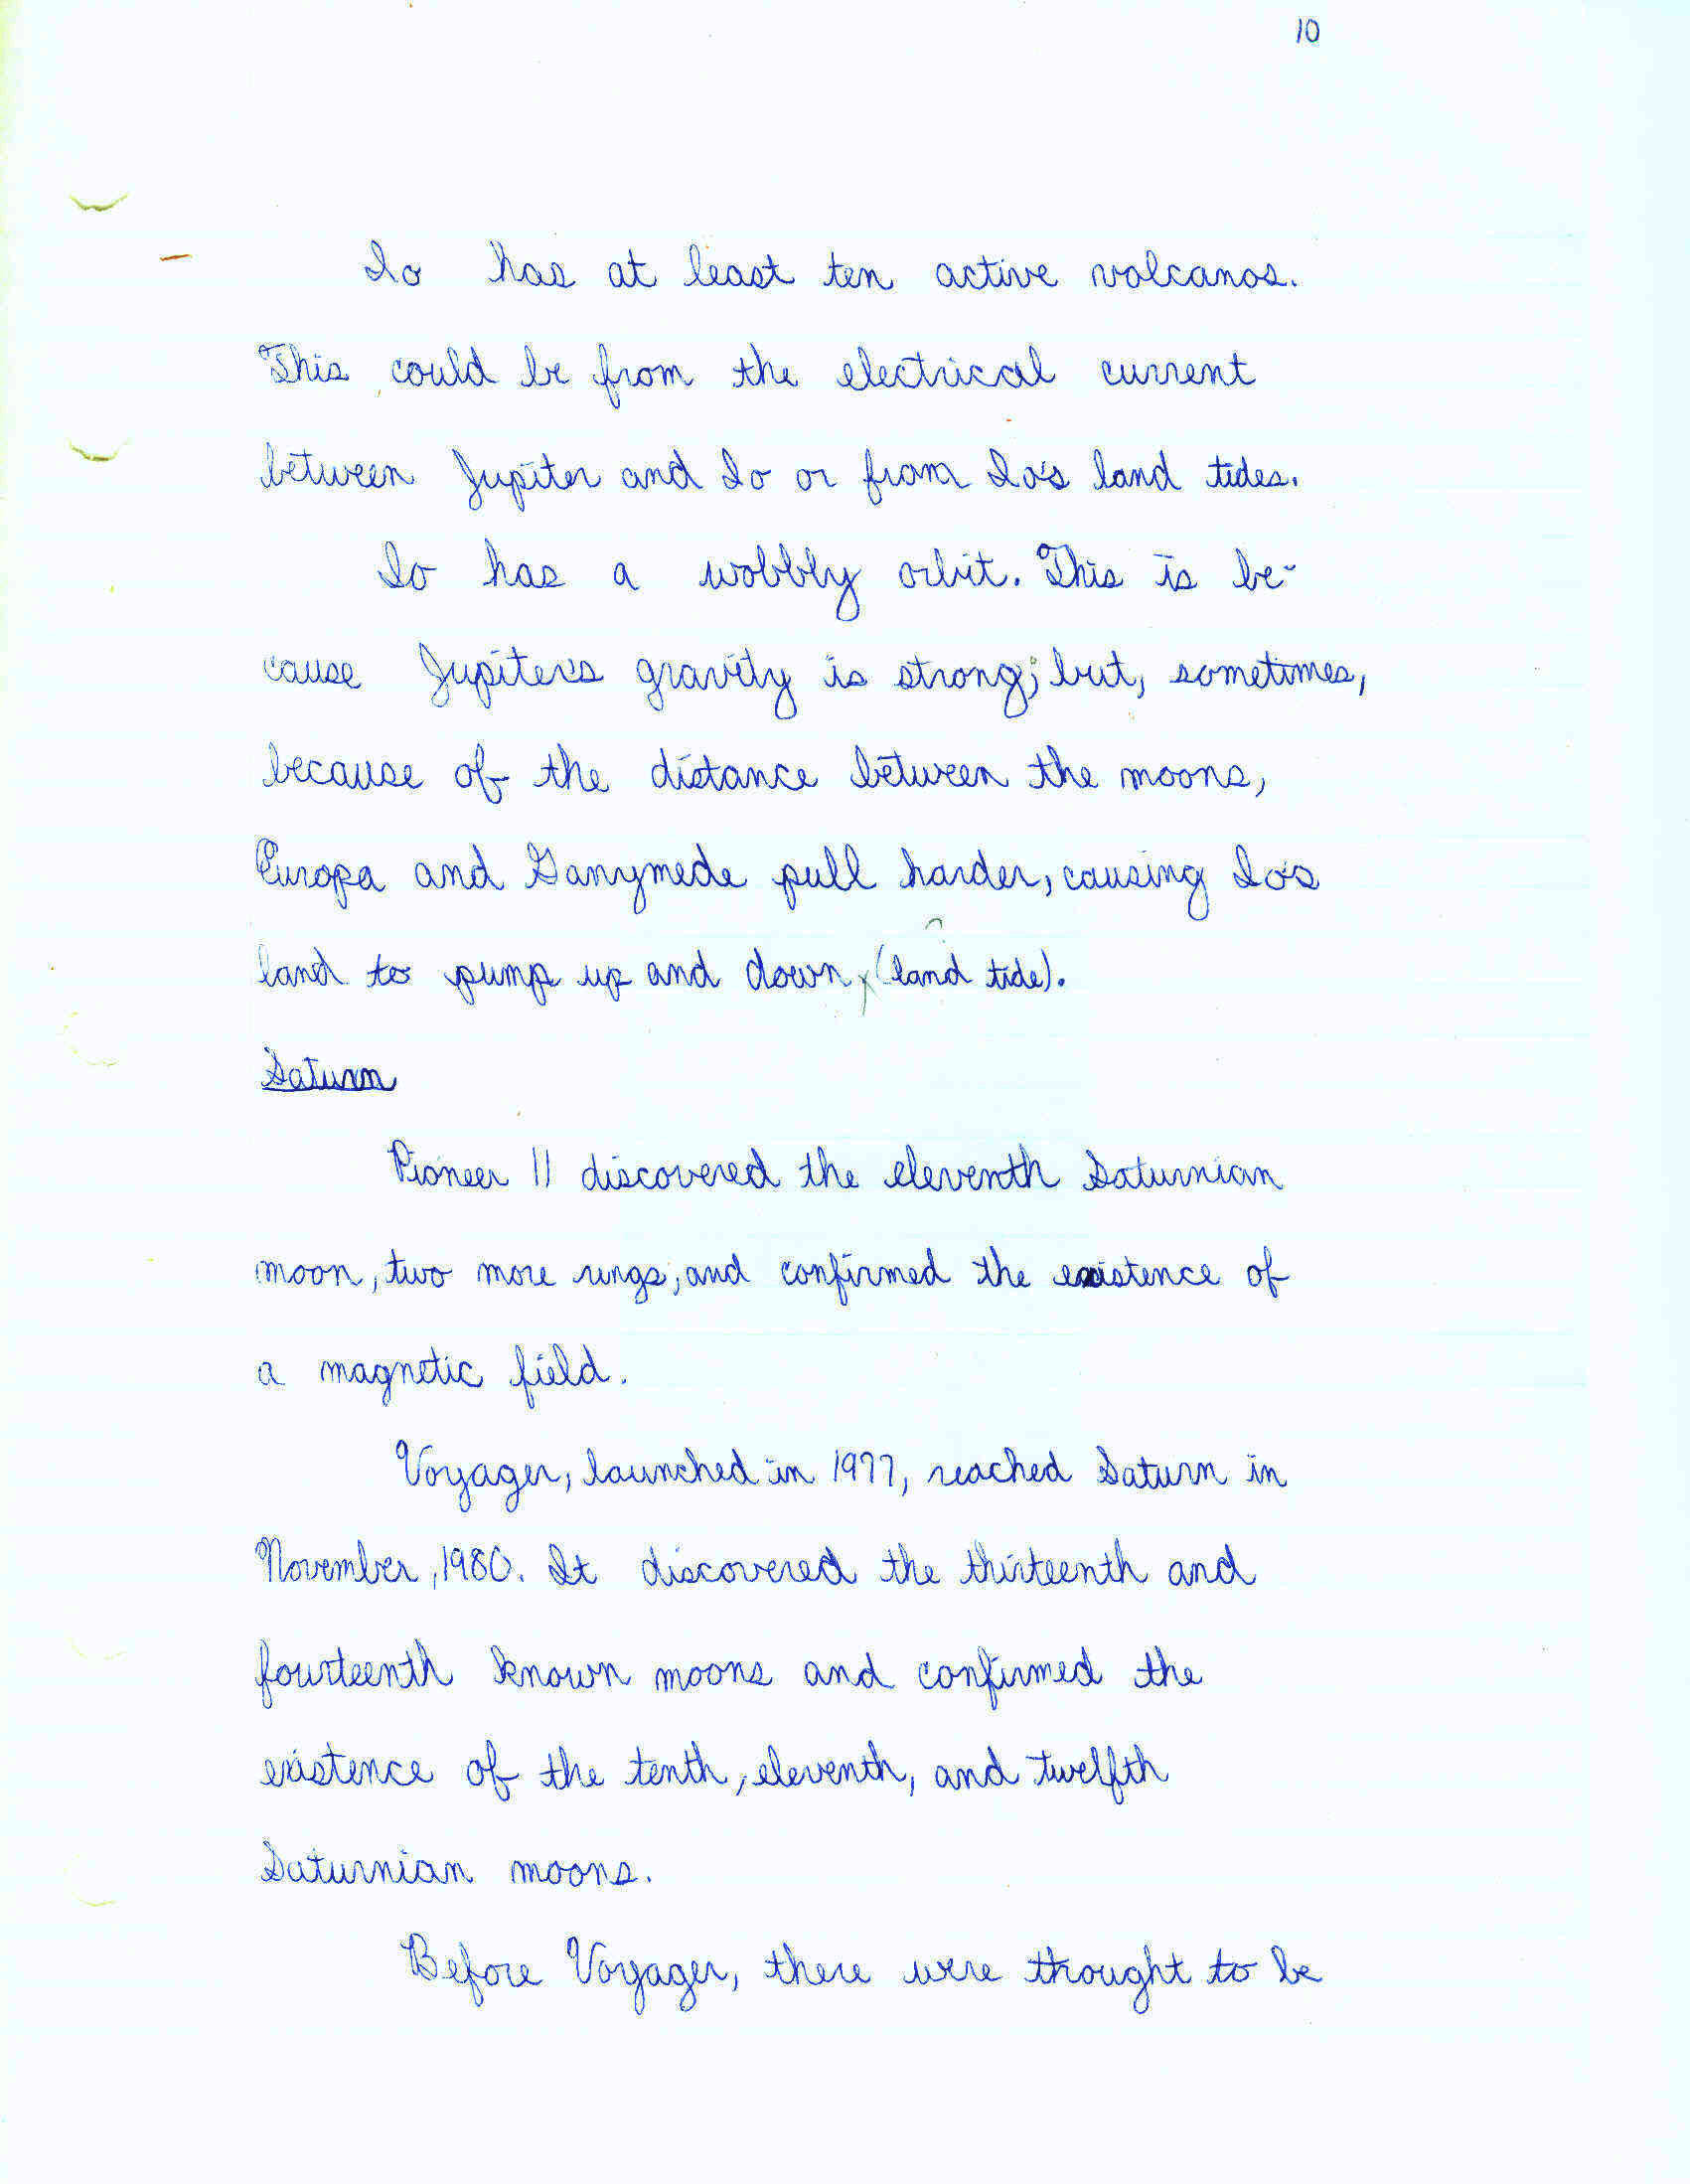 10
Io has at least ten active volcanos.
This could be from the electrical current
between Jupiter and Io or from Io's land tides.
Io has a wobbly orbit. This is be-
cause Jupiter's gravity is strong; but, sometimes,
because of the distance between the moons,
Europa and Ganymede pull harder, causing Io's
land to pump up and down, (land tide).
Saturn
Pioneer 11 discovered the eleventh Saturnian
moon, two more rings, and confirmed the existence of
a magnetic field.
Voyager, launched in 1977, reached Saturn in
November, 1980. It discovered the thirteenth and
fourteenth known moons and confirmed the
existence of the tenth, eleventh, and twelfth
Saturnian moons.
Before Voyager, there were thought to be